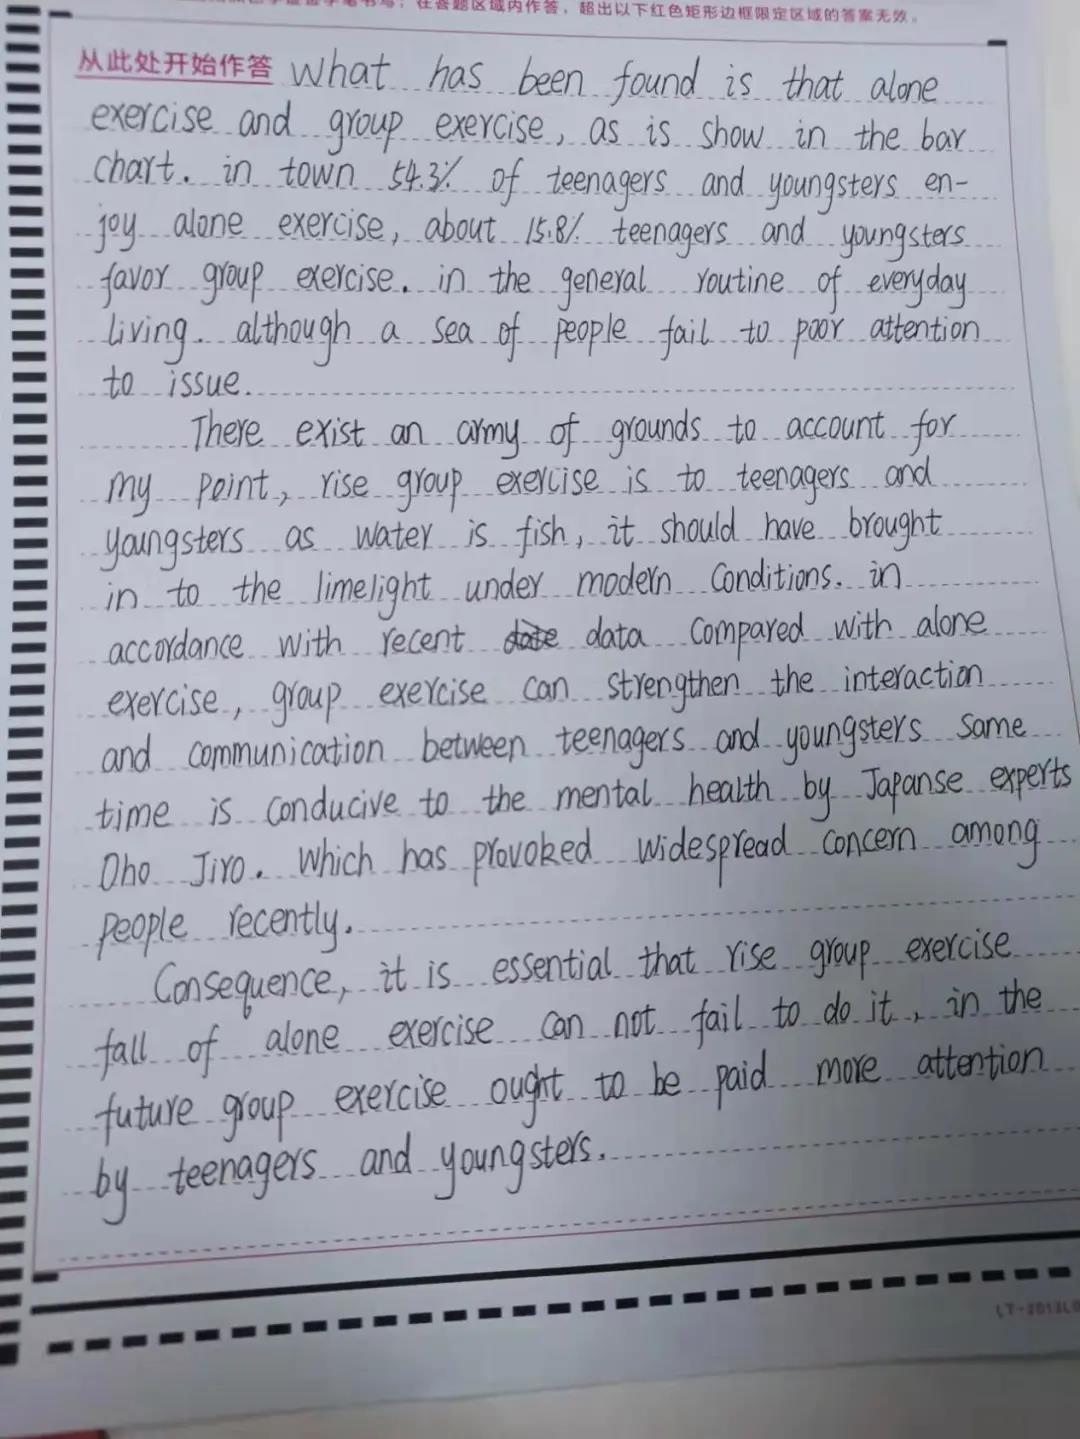 在答题区域内作答，超出以下红色矩形边框限定区域的答案无效。
从此处开始作答 What has been found is that alone
exercise and group exercise, as is show in the bar
chart. in town 54.3% of teenagers and youngsters en-
joy alone exercise, about 15.8% teenagers and youngsters
favor group exercise. in the general routine of everyday
living. although a sea of people fail to poor attention
to issue.
There exist an army of grounds to account for
my point, rise group exercise is to teenagers and
youngsters as water is fish, it should have brought
in to the limelight under modern conditions. in
accordance with recent data compared with alone
exercise, group exercise can strengthen the interaction
and communication between teenagers and youngsters same
time is conducive to the mental health by Japanse experts
Oho Jiro. Which has provoked widespread concern among
people recently.
Consequence, it is essential that rise group exercise
fall of alone exercise can not fail to do it, in the
future group exercise ought to be paid more attention
by teenagers and youngsters.